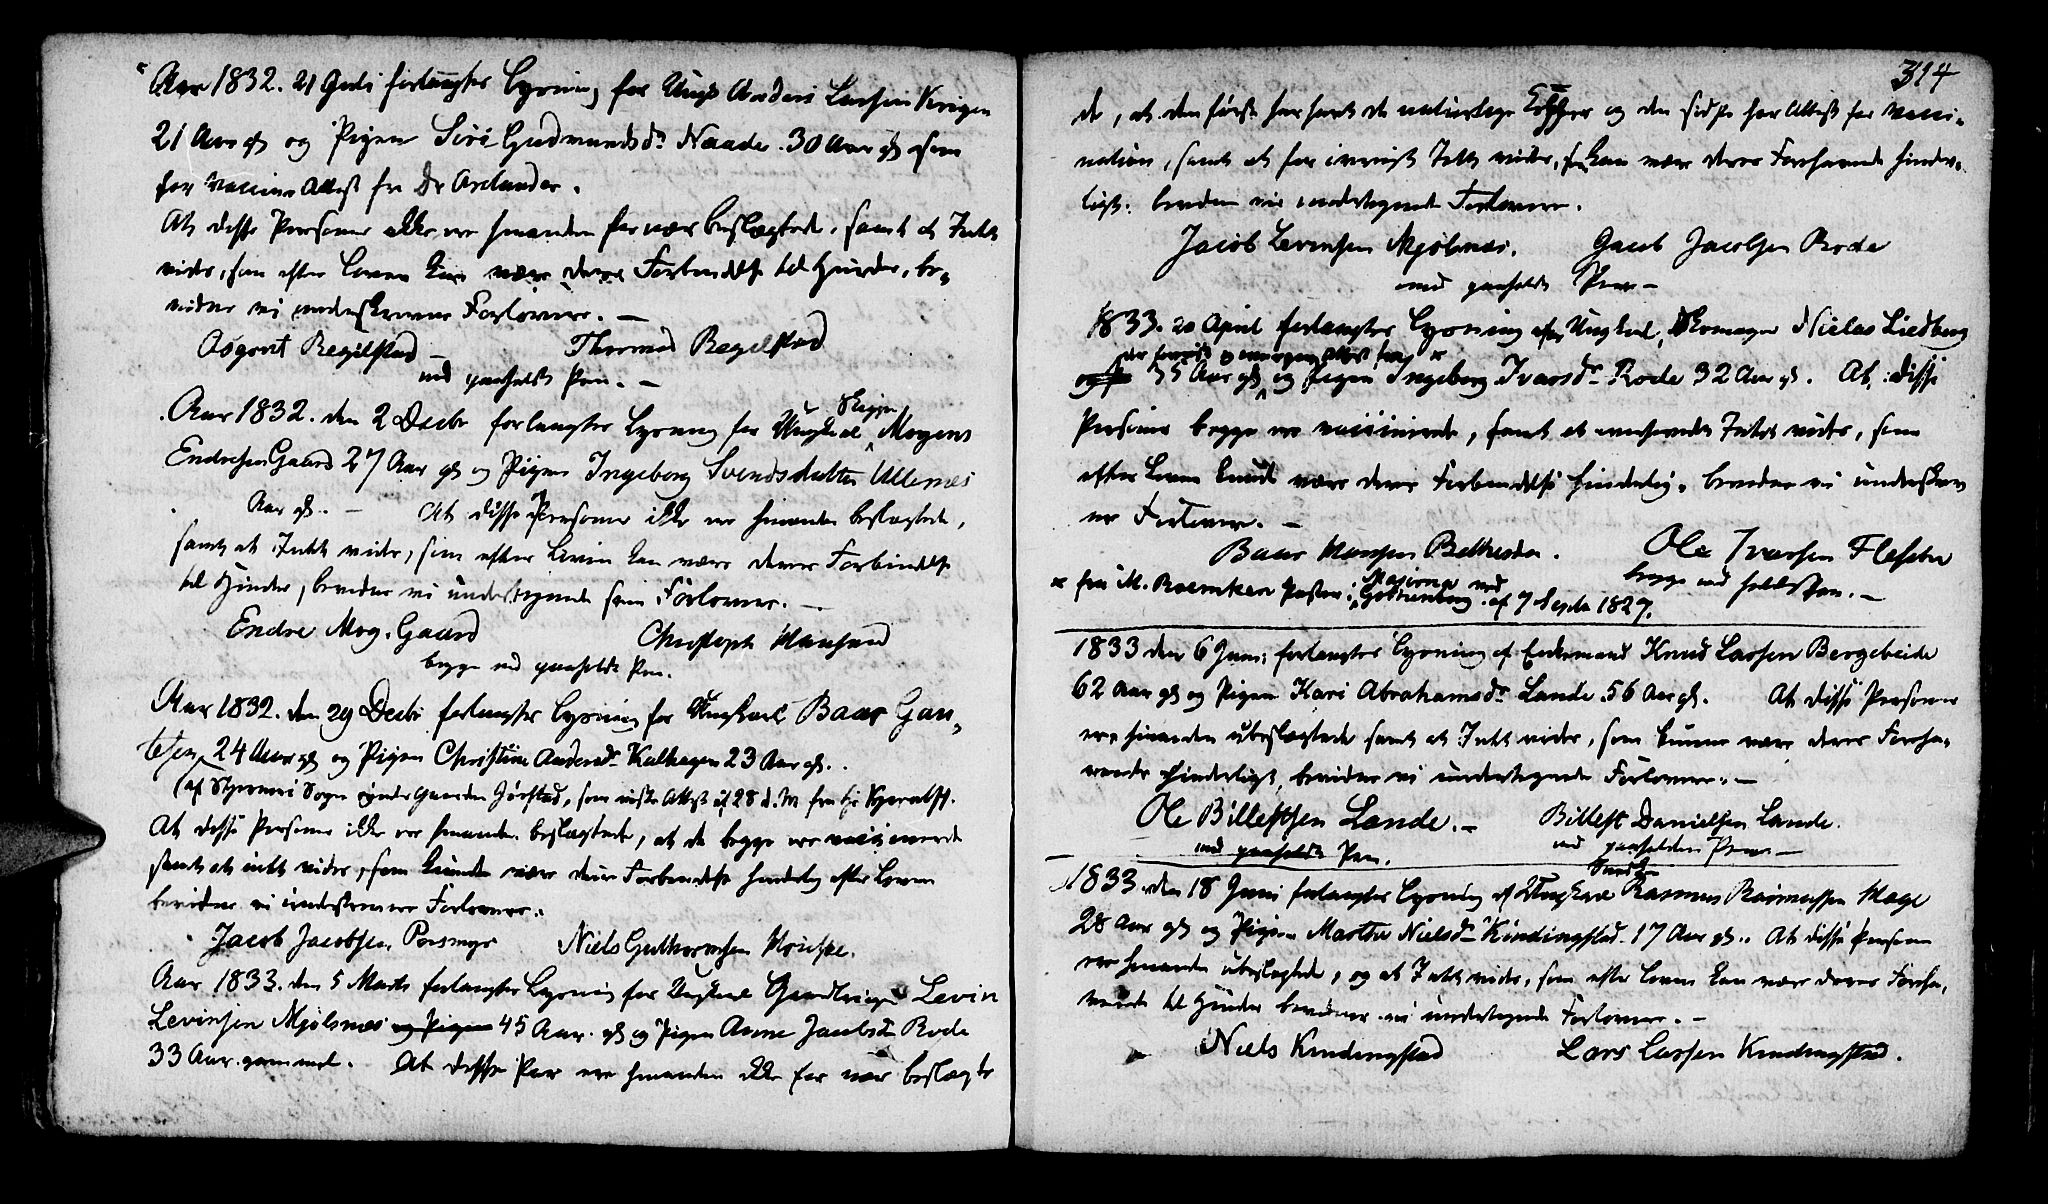 Aar 1832. 21 Juli forlangtes Lysning for Ungk Anders Larsen
21 Aar gl og Pigen Siri Gudmundsdr Naade 30 Aar gl som
har Vaccine Attest fra Dr Axlander.
At disse Personer ikke ere hinanden for nær beslægtede, samt at Intet
vides, som efter Loven kan være deres Forbindelse til Hinder, be-
vidner vi underskrevne Forlovere. —
Asgout Regelstad — Thormod Regelstad
med paaholdt Pen. —
Aar 1832. den 2 Decbr forlangtes Lysning for Ungkarl Mogens
Endresen Gaard 27 Aar gl og Pigen Ingeborg Svendsdatter Ullenæs
Aar gl. — At disse Personer ikke ere hinanden beslægtede,
samt at Intet vides, som efter Loven kan være deres Forbindelse
til Hinder, bevidner vi undertegnede som Forlovere. —
Endre Mog. Gaard Christoph Mansand
begge med paaholdt Pen.
Aar 1832. den 29 Decbr forlangtes Lysning for Ungkarl Baar Gau-
tesen 24 Aar gl og Pigen Christine Andersdr Kalhagen 23 Aar gl.
(af Sogn Gaarden Jørstad, som viste Attest af 28 d. M. fra Hr
At disse Personer ikke ere hinanden beslægtede, at de begge ere vaccinerede
samt at intet vides, som kunde være deres Forbindelse hinderlig efter Loven
bevidner vi underskrevne Forlovere.
Jacob Jacobsen Porsmyr Niels Guthormsen
Aar 1833. den 5 Marts forlangtes Lysning for Ungkarl Levin
Levinsen Mjølsnæs og Pigen 45 Aar gl og Pigen Anne Jacobsdr Rode
33 Aar gammel. At disse Par ere hinanden ikke for nær beslægte
314
de, at den første har havt de naturlige Kopper og den sidste har Attest for Vacci-
nation, samt at for øvrigt Intet vides, som kan være deres Forhavende hinder-
ligt, bevidne vi undertegnede Forlovere.
Jacob Levinsen Mjølsnæs. Jacob Jacobsen Rode
med paaholdt Pen —
1833. 20 April forlangtes Lysning for Ungkarl, Skomager Nielas Liedberg
35 Aar gl og Pigen Ingeborg Ivarsdr Rode 32 Aar gl. At disse
Personer begge ere vaccinerede, samt at Intet vides, som
efter Loven kunde være deres Forbindelse hinderlig, bevidner vi underskrev
ne Forlovere. —
Baar Hansen Bethuelsen. Ole Ivarsen Flesebø
begge med holdt Pen. —
* fra M. Roemcken Pastor i Gothenborg af 7 Septr 1827.
1833 den 6 Juni forlangtes Lysning af Enkemand Knud Larsen Bergeheide
62 Aar gl og Pigen Kari Abrahamsdr Lande 56 Aar gl. At disse Personer
ere hinanden ubeslægtede samt at Intet vides, som kunne være deres Forha-
vende hinderligt, bevidner vi undertegnede Forlovere. —
Ole Billestsen Lande. — Billest Danielsen Lande.
med paaholdt Pen. med paaholden Pen —
1833 den 18 Juni forlangtes Lysning af Ungkarl Rasmus Rasmussen Hage
28 Aar gl og Pigen Martha Nielsdr Kindingstad 17 Aar gl. At disse Personer
ere hinanden ubeslægtede, og at Intet vides, som efter Loven kan være deres Forha-
vende til Hinder bevidner vi undertegnede Forlovere. —
Niels Kindingstad Lars Larsen Kindingstad.